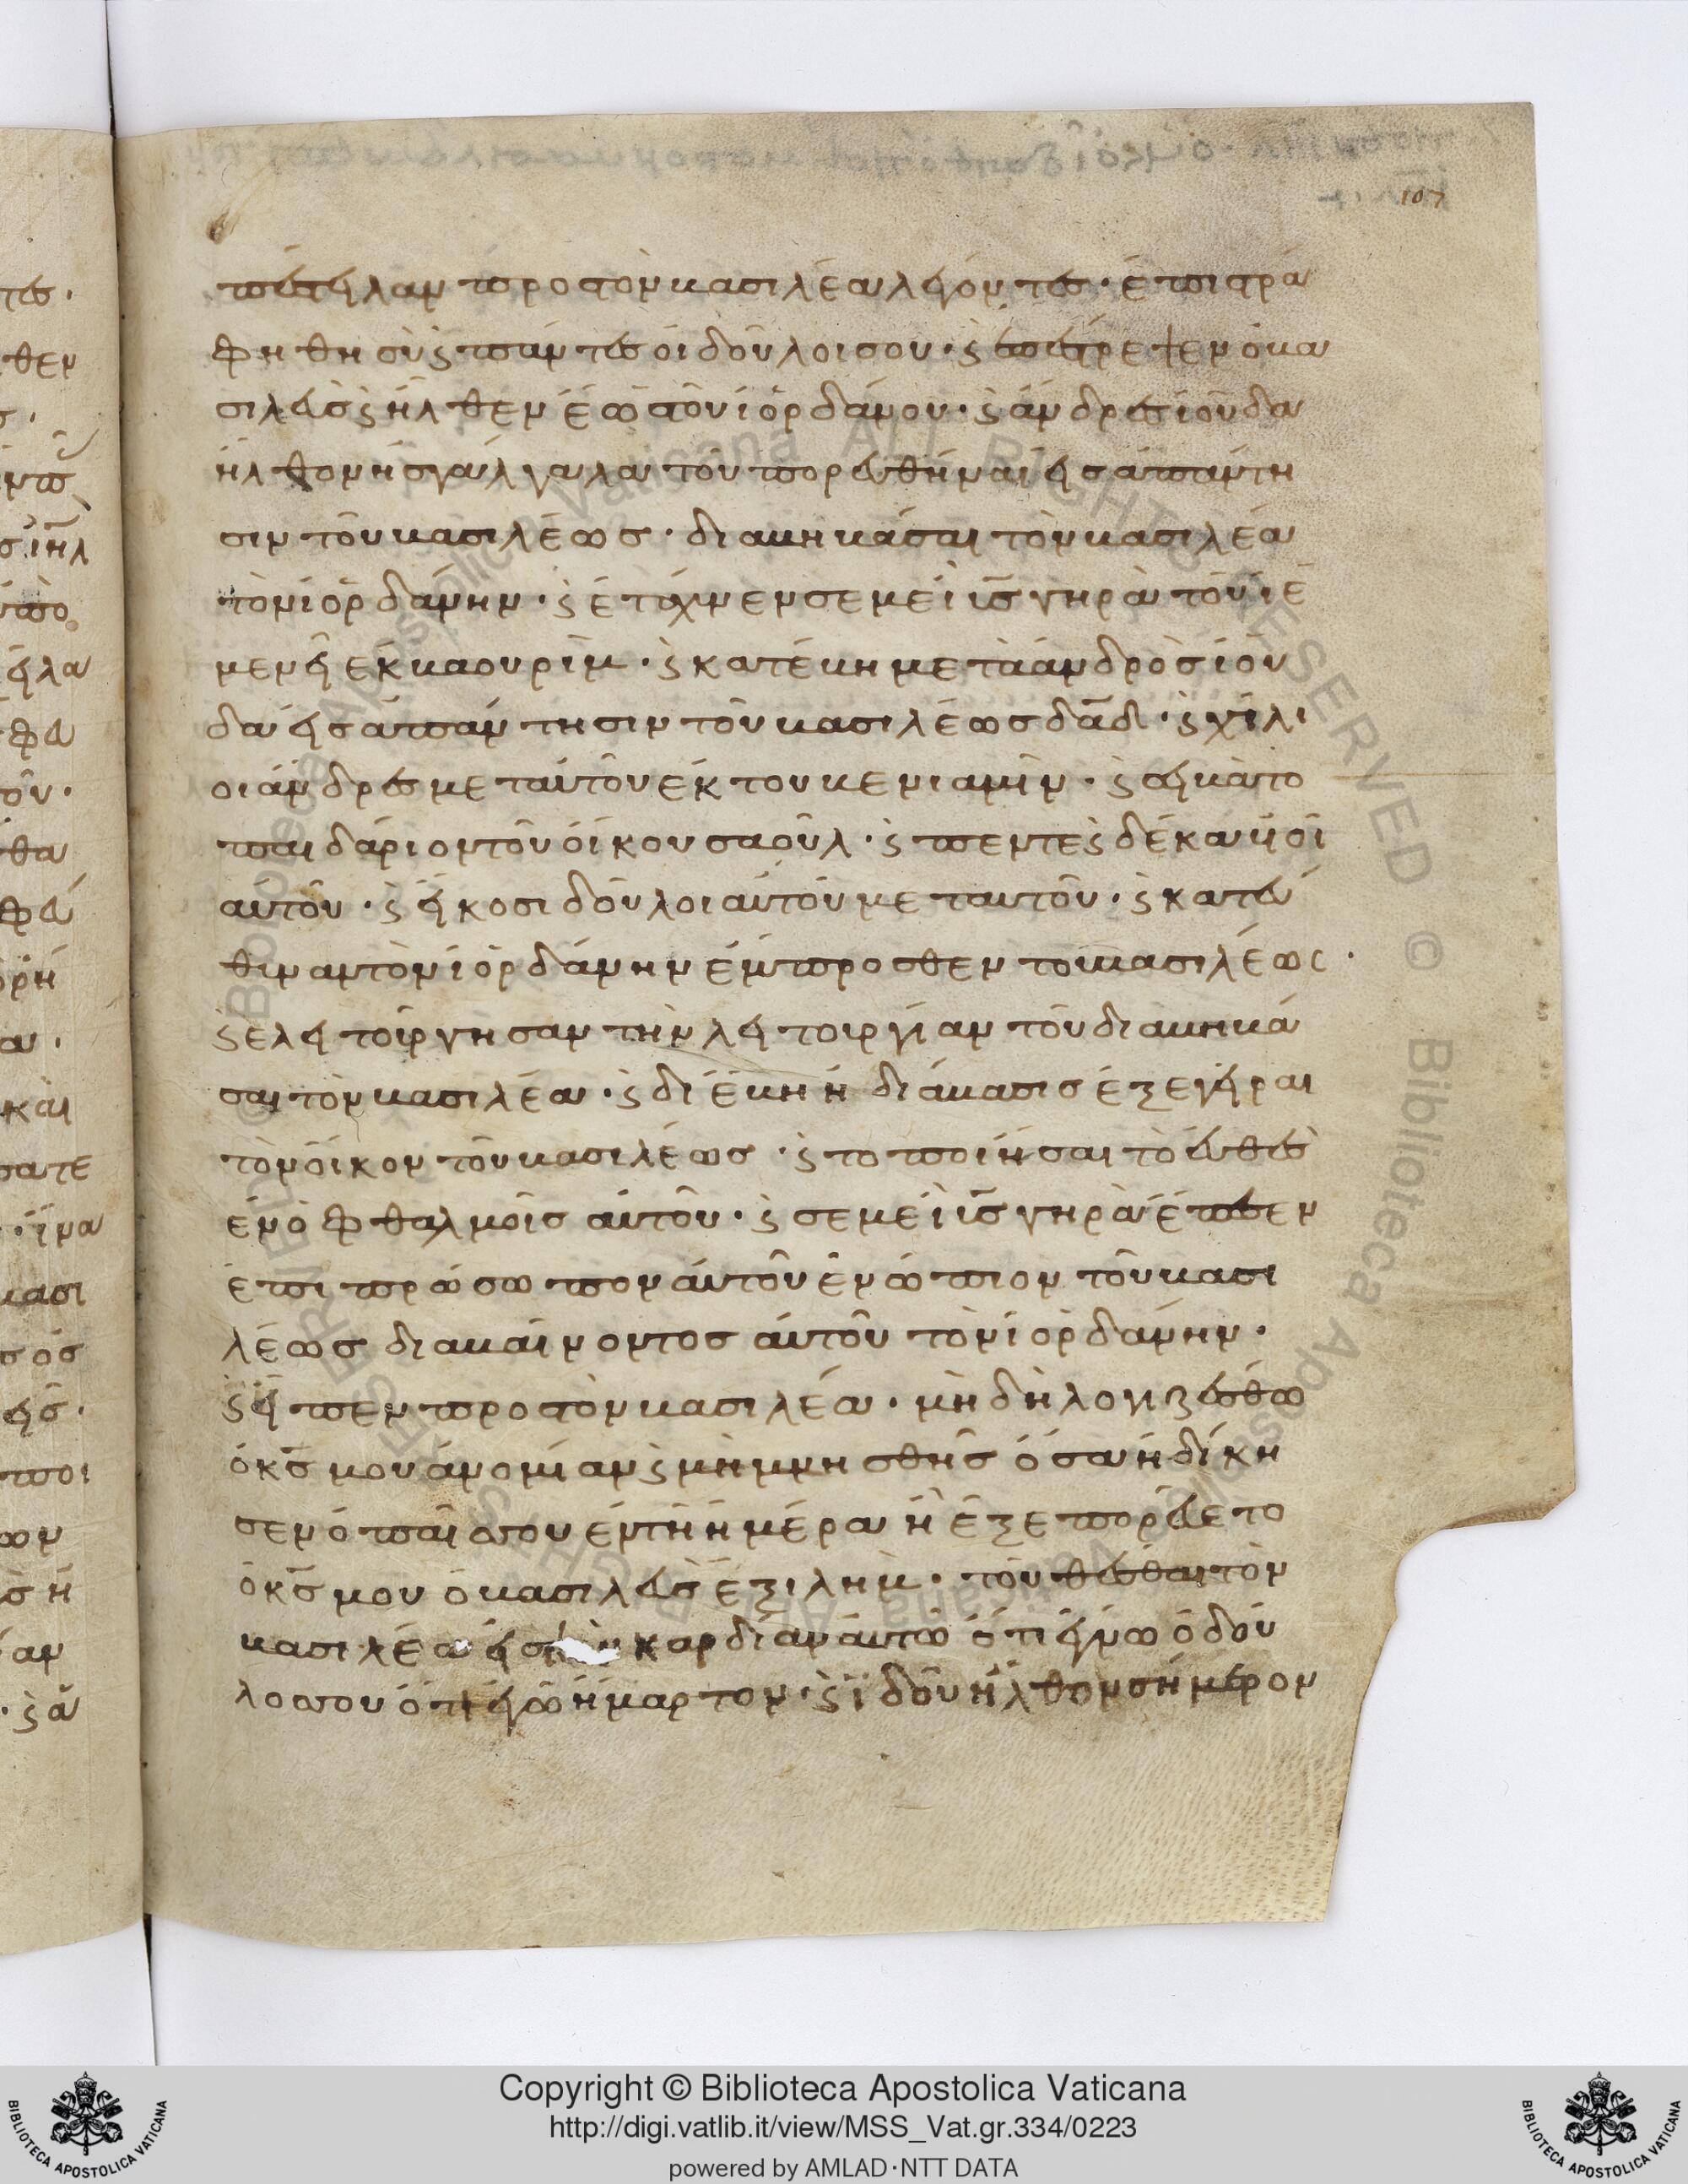 107
πέστειλαν προς τὸν βασιλέα λέγοντες· ἐπιστρά
φηθη σὺ ϛ πάντες οἱ δοῦλοι σου· ϛ ἐπέστρεψεν ὁ βα
σιλεὺς ϛ ἦλθεν ἕως τοῦ ἰορδάνου· ϛ ἄνδρες ἰούδα
ἦλθον ἠσ γάλγαλα τοῦ πορευθῆναι εἰς ἀπάντη
σιν τοῦ βασιλέως· διαβηβάσαι τὸν βασιλέα
τὸν ἰορδάνην· ϛ ἐτάχυνεν σεμεΐ ϊς γηρὰ τοῦ ἰε
μενεῖ ἐκ βαουρὶμ· ϛ κατέβη μετὰ ἀνδρὸς ἰού
δα εἰς ἀπάντησιν τοῦ βασιλέως δαδ· ϛ χίλι
οι ἄνδρες μετ αὐτοῦ ἐκ του βενιαμὶν· ϛ σηβὰ το
παιδάριον τοῦ οἴκου σαοῦλ· ϛ πεντε ϛ δέκα ϋἱοὶ
αὐτοῦ· ϛ εἴκοσι δοῦλοι αὐτοῦ μετ αυτοῦ· ϛ κατεύ
θυναν τὸν ἰορδάνην ἔμπροσθεν του βασιλέως·
ϛ ελειτούργησαν τὴν λειτουργίαν τοῦ διαβηβά
σαι τὸν βασιλέα· ϛ διέβη ἡ διάβασις ἐξεγεῖραι
τὸν οἶκον τοῦ βασιλέως· ϛ το ποιῆσαι τὸ εὐθὲς
ἐν ὀφθαλμοῖς αὐτοῦ· ϛ σεμεΐ ϊς γηρὰ ἔπεσεν
ἐπι πρώσωπον αὐτοῦ ἐνώπιον τοῦ βασι
λέως διαβαίνοντος αὐτοῦ τὸν ἰορδάνην·
ϛ εἶπεν προς τὸν βασιλέα· μὴ δὴ λογιζέσθω
ὁ κς μου ἀνομίαν ϛ μὴ μνησθῆς ὅσα ἠδίκη
σεν ὁ παῖς σου ἐν τῆ ἡμέρα ἧ ἐξεπορεύετο
ὁ κς μου ὁ βασιλεὺς ἐξ ιλημ· τοῦ θέσθαι τὸν
βασιλέα εἰς καρδίαν αὐτῶ ὅτι ἔγνω ὁ δοῦ
λος σου ὅτι ἐγὼ ἥμαρτον· ϛ ϊδοῦ ἦλθον σήμερον
Copyright © Biblioteca Apostolica Vaticana
http://digi.vatlib.it/view/MSS_Vat.gr.334/0223
powered by AMLAD·NTT DATA